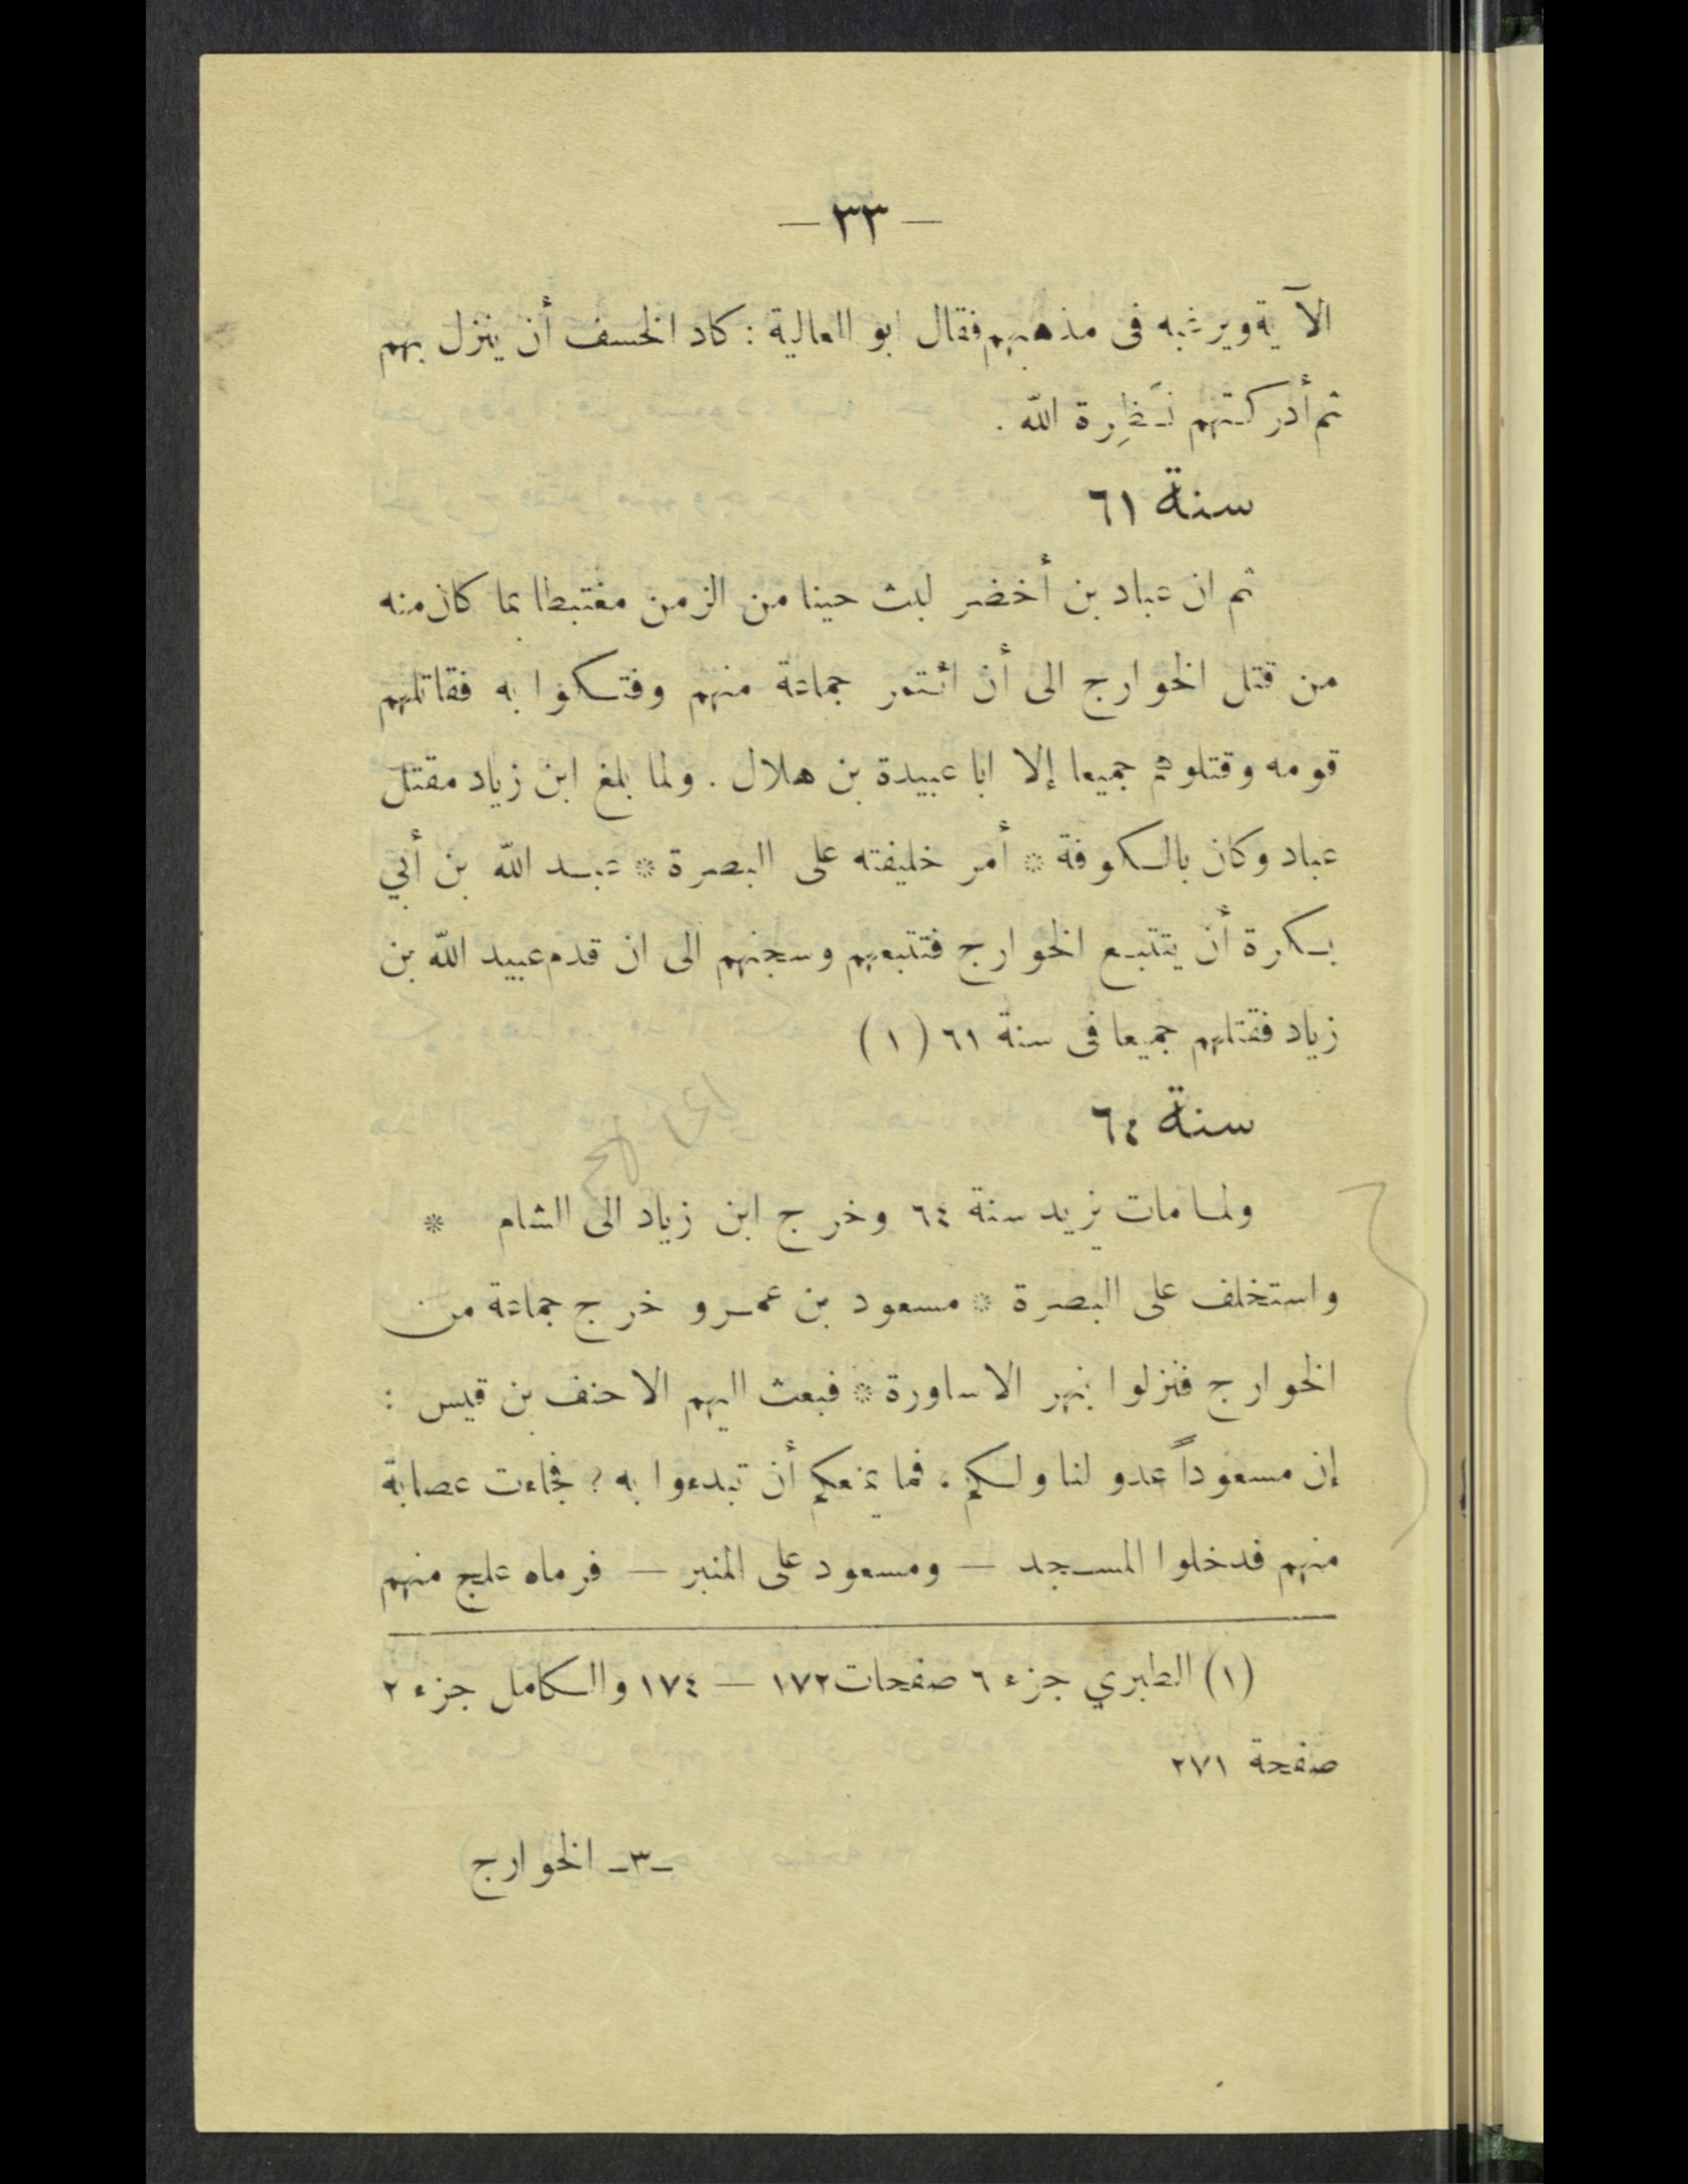 — ٣٣ —
الآية ويرغبه فى مذهبهم فقال ابو العالية : كاد الخسف أن ينزل بهم
ثم أدركتهم نَظِرة الله .
سنة ٦١
ثم ان عباد بن أخضر لبث حينا من الزمن مغتبطا بما كان منه
من قتل الخوارج الى أن ائتمر جماعة منهم وفتكوا به فقاتلهم
قومه وقتلوهم جميعا إلا ابا عبيدة بن هلال . ولما بلغ ابن زياد مقتل
عباد وكان بالكوفة * أمر خليفته على البصرة * عبد الله بن أبي
بكرة أن يتتبع الخوارج فتتبعهم وسجنهم الى ان قدم عبيد الله بن
زياد فقتلهم جميعا فى سنة ٦١ ( ١ )
سنة ٦٤
ولما مات يزيد سنة ٦٤ وخرج ابن زياد الى الشام *
واستخلف على البصرة * مسعود بن عمرو خرج جماعة من
الخوارج فنزلوا بنهر الاساورة * فبعث اليهم الاحنف بن قيس :
إن مسعوداً عدو لنا ولكم ، فما يمنعكم أن تبدءوا به ؟ فجاءت عصابة
منهم فدخلوا المسجد — ومسعود على المنبر — فرماه علج منهم
(١) الطبري جزء ٦ صفحات ١٧٢ — ١٧٤ والكامل جزء ٢
صفحة ٢٧١
ـ٣ـ الخوارج